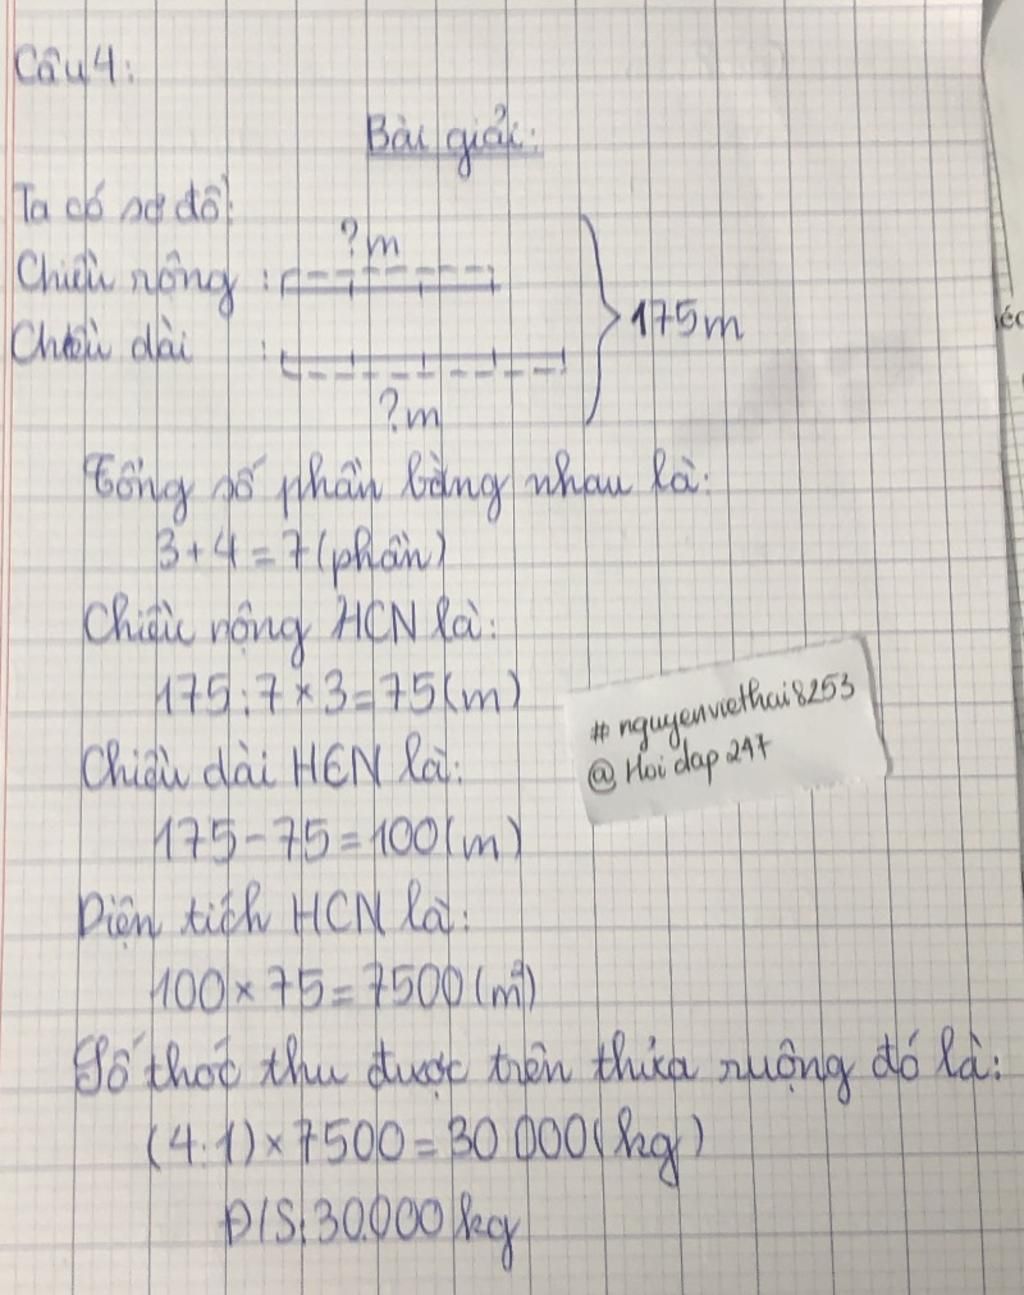 Câu 4:
Bài giải:
Ta có sơ đồ:
?m
Chiều rộng :
175m
Chiều dài :
?m
Tổng số phần bằng nhau là:
3+4=7(phần)
Chiều rộng HCN là:
175:7×3=75(m)
#nguyenviethai8253
@Hoi dap 247
Chiều dài HCN là:
175-75=100(m)
Diện tích HCN là:
100×75=7500(m²)
Số thóc thu được trên thửa ruộng đó là:
(4:1)×7500=30 000(kg)
Đ/S:30.000kg